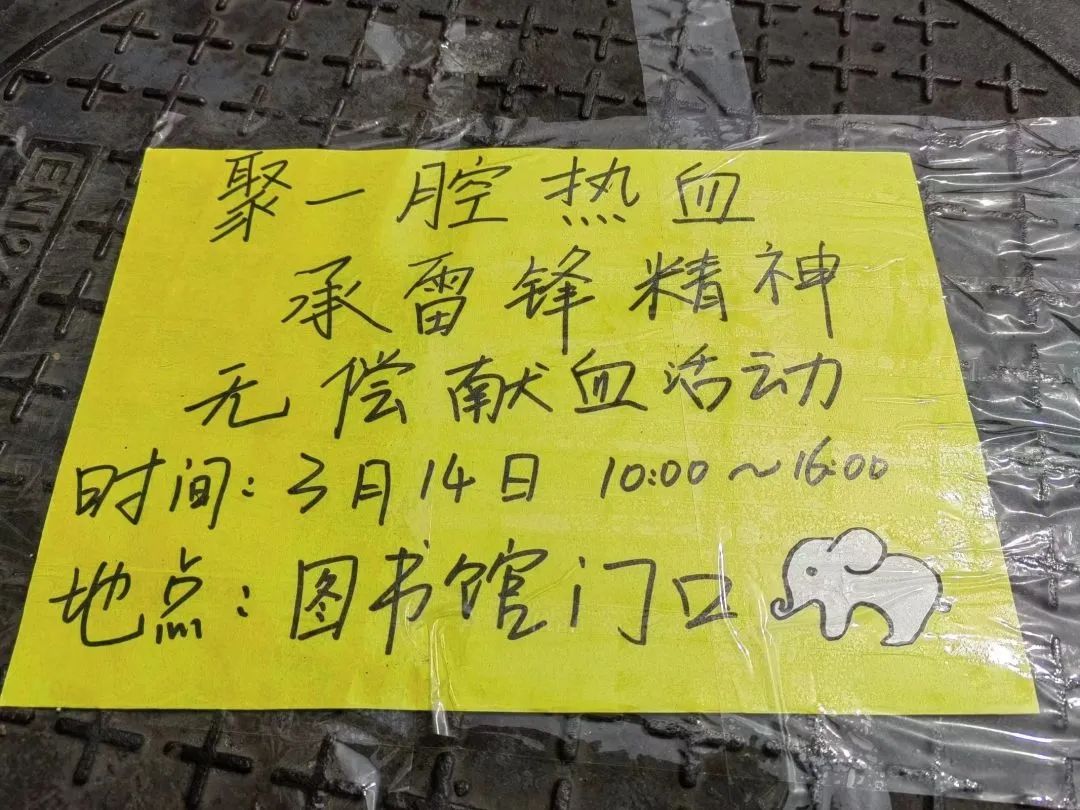 聚一腔热血
承雷锋精神
无偿献血活动
时间：3月14日 10:00～16:00
地点：图书馆门口
EN12